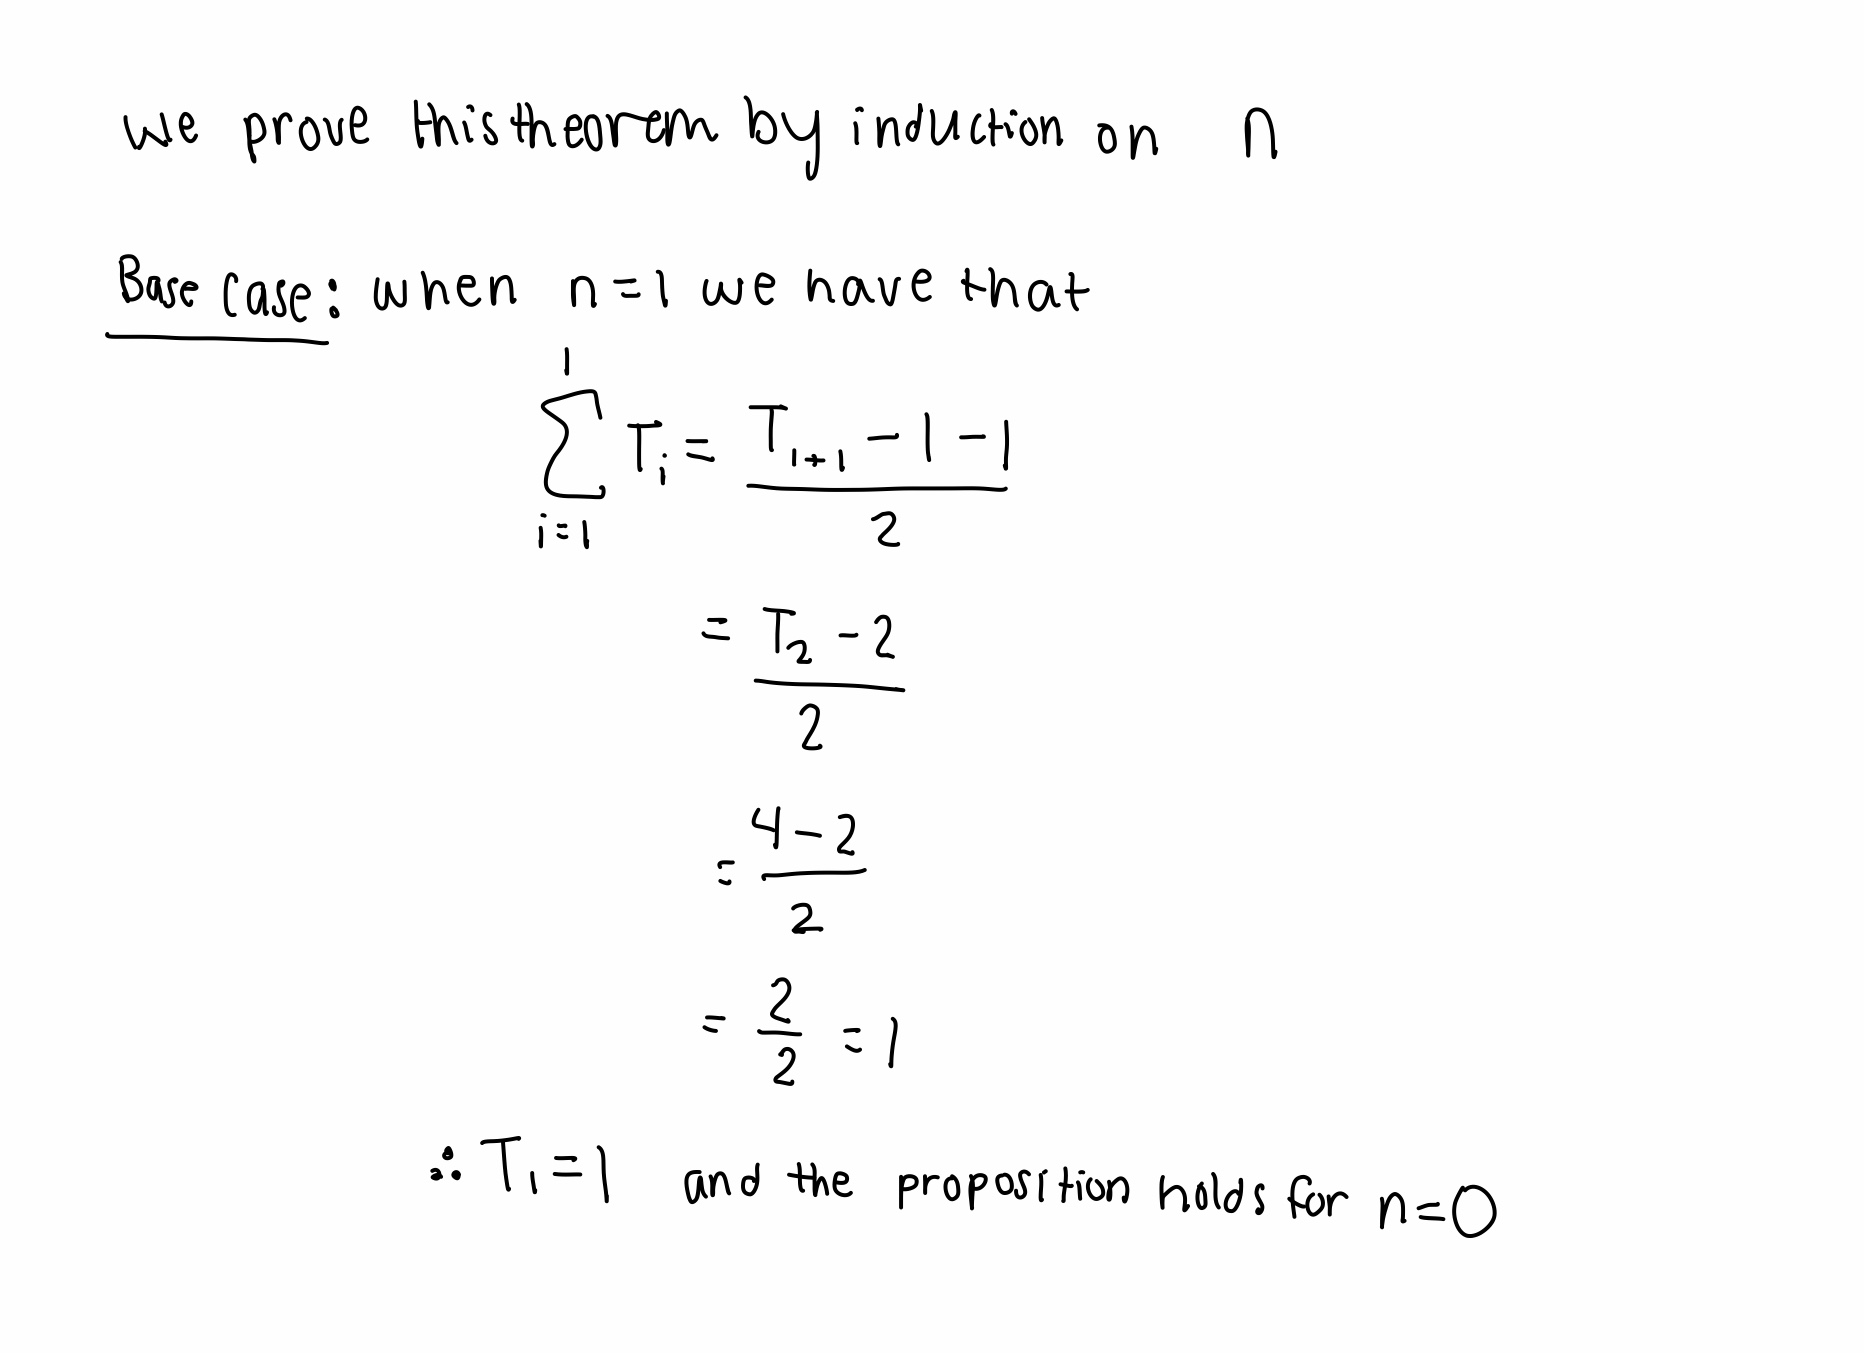 We prove this theorem by induction on n
Base case: when n=1 we have that
1
∑ Tᵢ = T₁₊₁ - 1 - 1
i=1 2
= T₂ - 2
2
= 4 - 2
2
= 2
2 = 1
∴ T₁ = 1 and the proposition holds for n=0